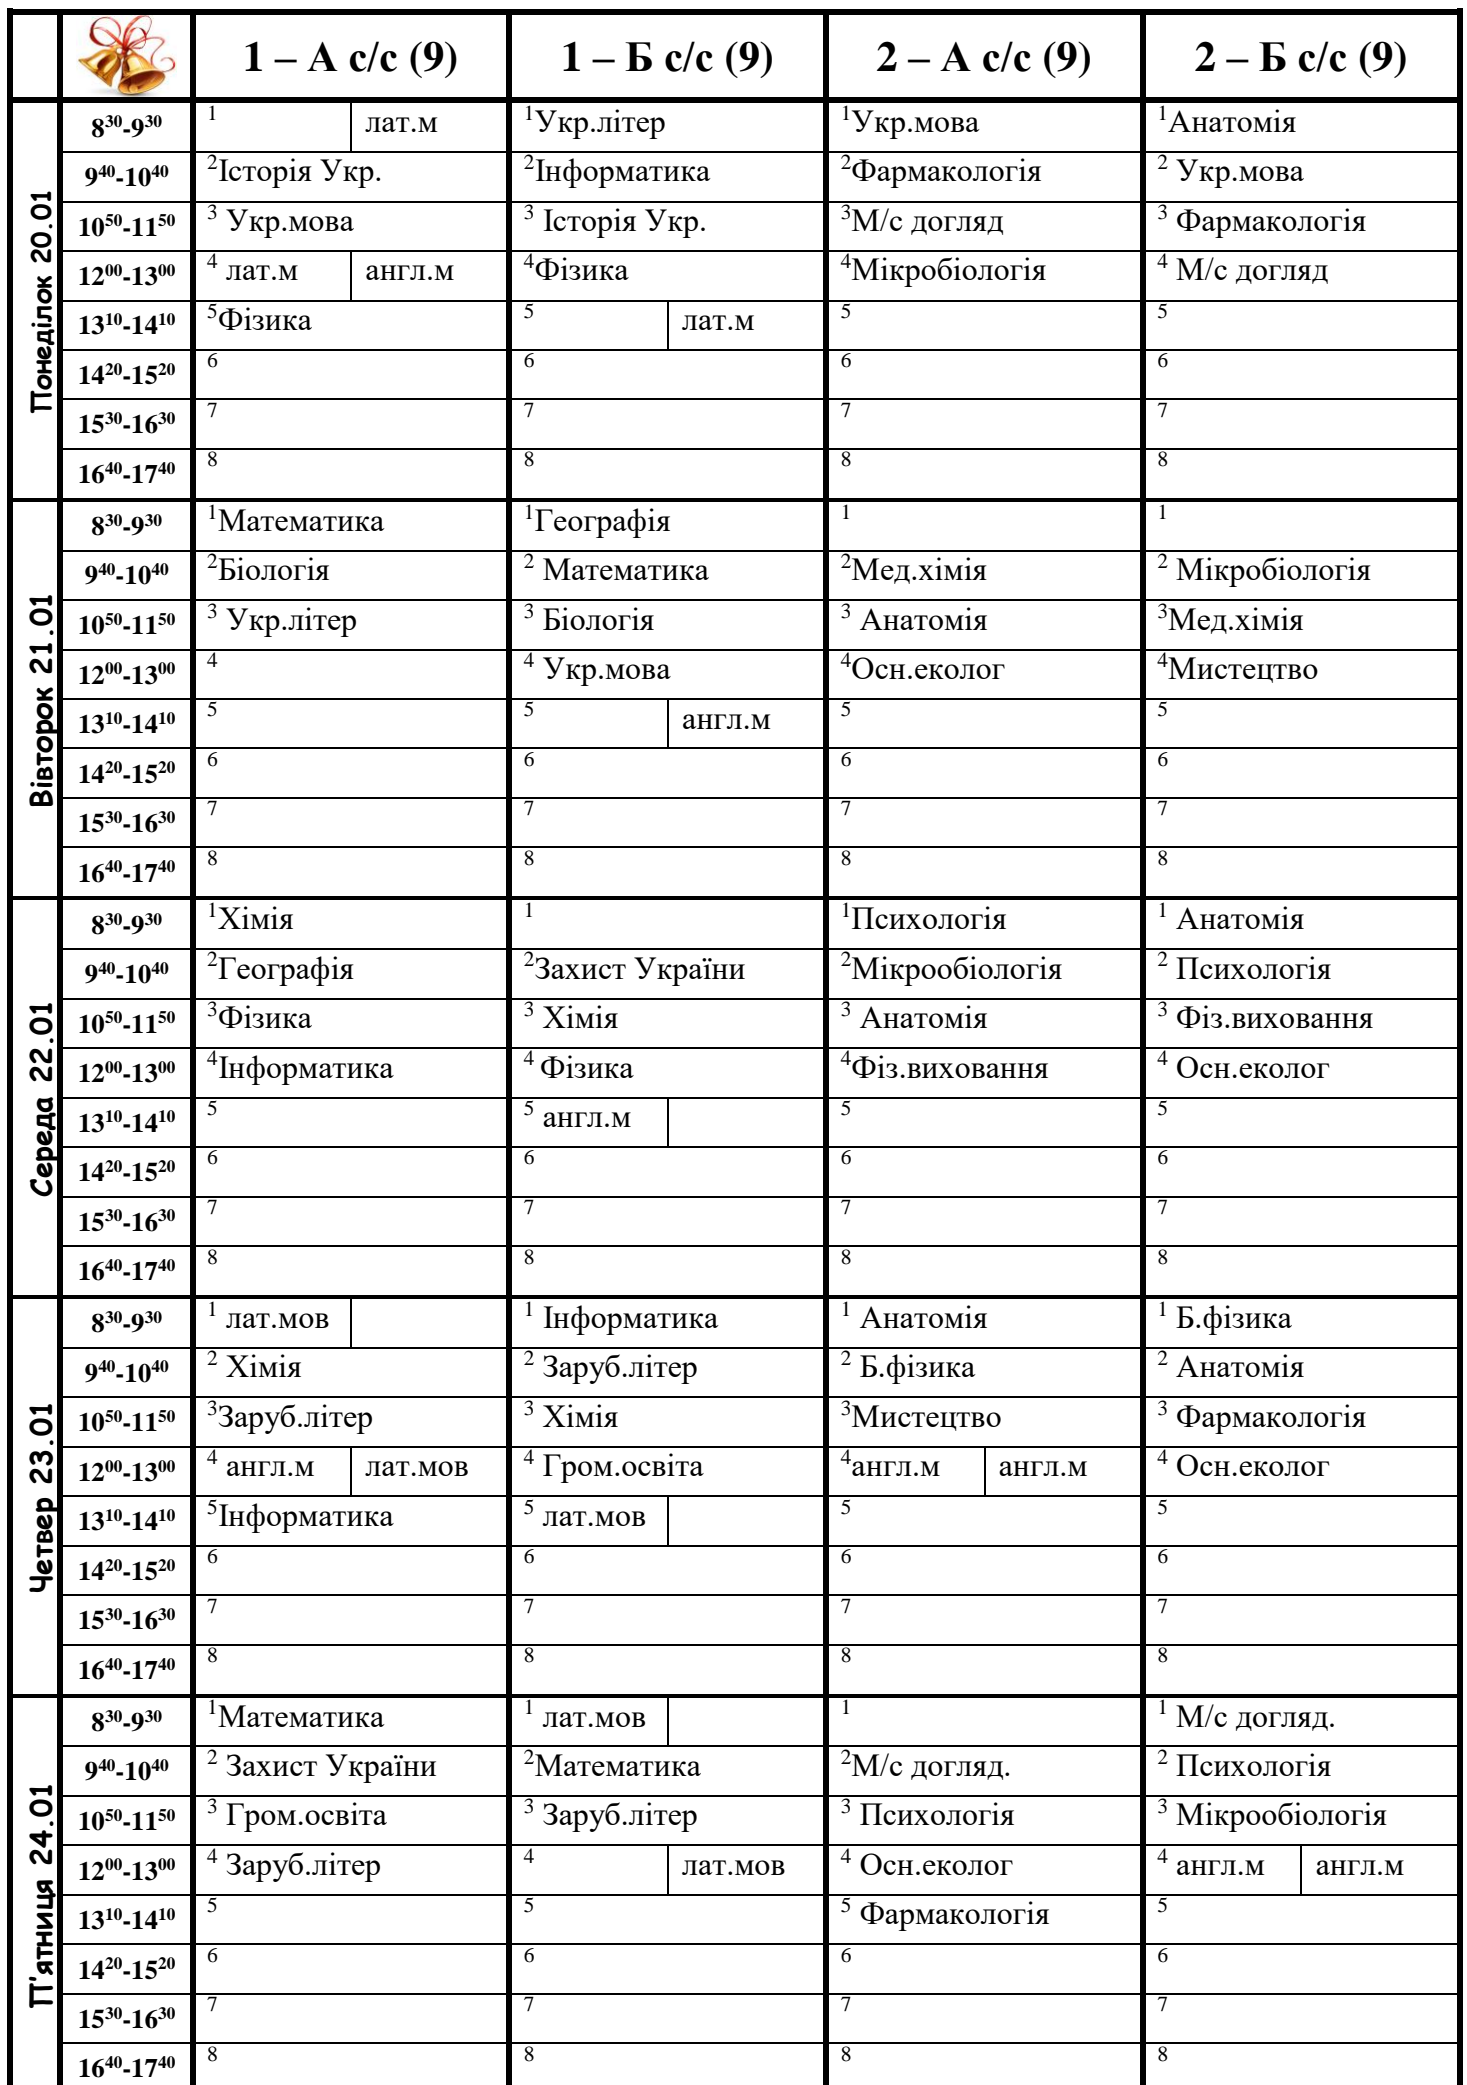 1 – А с/с (9) 1 – Б с/с (9) 2 – А с/с (9) 2 – Б с/с (9)
Понеділок 20.01
8³⁰-9³⁰ ¹ лат.м ¹Укр.літер ¹Укр.мова ¹Анатомія
9⁴⁰-10⁴⁰ ²Історія Укр. ²Інформатика ²Фармакологія ² Укр.мова
10⁵⁰-11⁵⁰ ³ Укр.мова ³ Історія Укр. ³М/с догляд ³ Фармакологія
12⁰⁰-13⁰⁰ ⁴ лат.м англ.м ⁴Фізика ⁴Мікробіологія ⁴ М/с догляд
13¹⁰-14¹⁰ ⁵Фізика ⁵ лат.м ⁵ ⁵
14²⁰-15²⁰ ⁶ ⁶ ⁶ ⁶
15³⁰-16³⁰ ⁷ ⁷ ⁷ ⁷
16⁴⁰-17⁴⁰ ⁸ ⁸ ⁸ ⁸
Вівторок 21.01
8³⁰-9³⁰ ¹Математика ¹Географія ¹ ¹
9⁴⁰-10⁴⁰ ²Біологія ² Математика ²Мед.хімія ² Мікробіологія
10⁵⁰-11⁵⁰ ³ Укр.літер ³ Біологія ³ Анатомія ³Мед.хімія
12⁰⁰-13⁰⁰ ⁴ ⁴ Укр.мова ⁴Осн.еколог ⁴Мистецтво
13¹⁰-14¹⁰ ⁵ ⁵ англ.м ⁵ ⁵
14²⁰-15²⁰ ⁶ ⁶ ⁶ ⁶
15³⁰-16³⁰ ⁷ ⁷ ⁷ ⁷
16⁴⁰-17⁴⁰ ⁸ ⁸ ⁸ ⁸
Середа 22.01
8³⁰-9³⁰ ¹Хімія ¹ ¹Психологія ¹ Анатомія
9⁴⁰-10⁴⁰ ²Географія ²Захист України ²Мікрообіологія ² Психологія
10⁵⁰-11⁵⁰ ³Фізика ³ Хімія ³ Анатомія ³ Фіз.виховання
12⁰⁰-13⁰⁰ ⁴Інформатика ⁴ Фізика ⁴Фіз.виховання ⁴ Осн.еколог
13¹⁰-14¹⁰ ⁵ ⁵ англ.м ⁵ ⁵
14²⁰-15²⁰ ⁶ ⁶ ⁶ ⁶
15³⁰-16³⁰ ⁷ ⁷ ⁷ ⁷
16⁴⁰-17⁴⁰ ⁸ ⁸ ⁸ ⁸
Четвер 23.01
8³⁰-9³⁰ ¹ лат.мов ¹ Інформатика ¹ Анатомія ¹ Б.фізика
9⁴⁰-10⁴⁰ ² Хімія ² Заруб.літер ² Б.фізика ² Анатомія
10⁵⁰-11⁵⁰ ³Заруб.літер ³ Хімія ³Мистецтво ³ Фармакологія
12⁰⁰-13⁰⁰ ⁴ англ.м лат.мов ⁴ Гром.освіта ⁴англ.м англ.м ⁴ Осн.еколог
13¹⁰-14¹⁰ ⁵Інформатика ⁵ лат.мов ⁵ ⁵
14²⁰-15²⁰ ⁶ ⁶ ⁶ ⁶
15³⁰-16³⁰ ⁷ ⁷ ⁷ ⁷
16⁴⁰-17⁴⁰ ⁸ ⁸ ⁸ ⁸
П'ятниця 24.01
8³⁰-9³⁰ ¹Математика ¹ лат.мов ¹ ¹ М/с догляд.
9⁴⁰-10⁴⁰ ² Захист України ²Математика ²М/с догляд. ² Психологія
10⁵⁰-11⁵⁰ ³ Гром.освіта ³ Заруб.літер ³ Психологія ³ Мікрообіологія
12⁰⁰-13⁰⁰ ⁴ Заруб.літер ⁴ лат.мов ⁴ Осн.еколог ⁴ англ.м англ.м
13¹⁰-14¹⁰ ⁵ ⁵ ⁵ Фармакологія ⁵
14²⁰-15²⁰ ⁶ ⁶ ⁶ ⁶
15³⁰-16³⁰ ⁷ ⁷ ⁷ ⁷
16⁴⁰-17⁴⁰ ⁸ ⁸ ⁸ ⁸